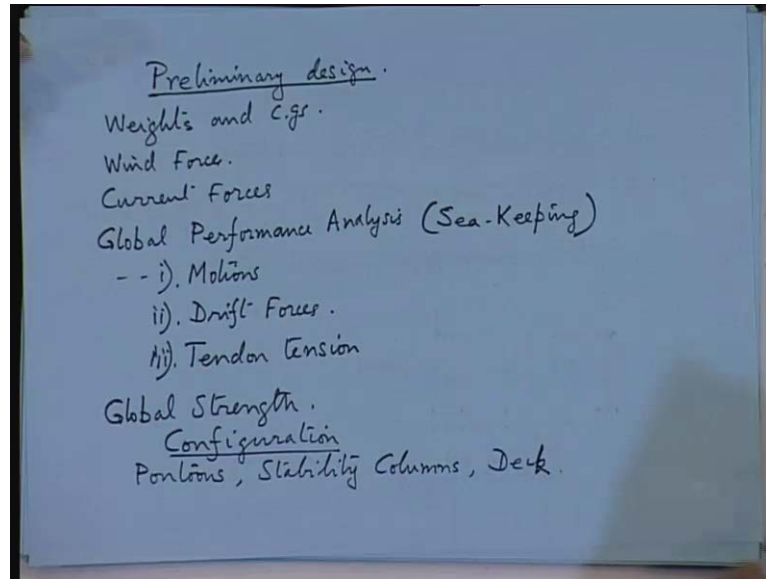 Preliminary design.
Weights and c.gs.
Wind Force.
Current Forces
Global Performance Analysis (Sea-Keeping)
-- i). Motions
ii). Drift Forces.
iii). Tendon Tension
Global Strength.
Configuration
Pontoons, Stability Columns, Deck.